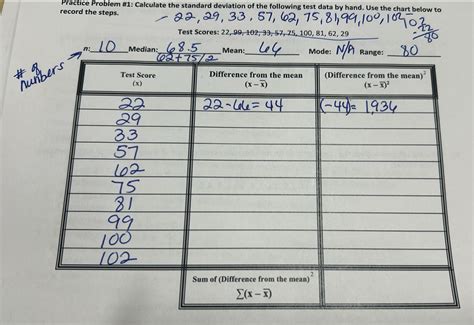 Practice Problem #1: Calculate the standard deviation of the following test data by hand. Use the chart below to
record the steps.
22, 29, 33, 57, 62, 75, 81, 99, 100, 102
Test Scores: 22, 99, 102, 33, 57, 75, 100, 81, 62, 29
n: 10 Median: 68.5 Mean: 66 Mode: N/A Range: 80
62+75/2
# of
numbers
Test Score
(x)
Difference from the mean
(x – x̅)
(Difference from the mean)²
(x – x̅)²
22 22-66=44 (-44)= 1,936
29
33
57
62
75
81
99
100
102
Sum of (Difference from the mean)²
∑(x – x̅)